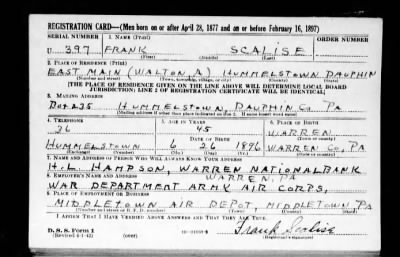 REGISTRATION CARD—(Men born on or after April 28, 1877 and on or before February 16, 1897)
SERIAL NUMBER 1. NAME (Print) ORDER NUMBER
U 397 FRANK SCALISE
(First) (Middle) (Last)
2. PLACE OF RESIDENCE (Print)
EAST MAIN (WALTON A) HUMMELSTOWN DAUPHIN
(Number and street) (Town, township, village, or city) (County) (State)
[THE PLACE OF RESIDENCE GIVEN ON THE LINE ABOVE WILL DETERMINE LOCAL BOARD
JURISDICTION; LINE 2 OF REGISTRATION CERTIFICATE WILL BE IDENTICAL]
3. MAILING ADDRESS
BOX 235 HUMMELSTOWN, DAUPHIN CO PA
[Mailing address if other than place indicated on line 2. If same insert word same]
4. TELEPHONE 5. AGE IN YEARS 6. PLACE OF BIRTH
26 45 WARREN
DATE OF BIRTH (Town or county)
HUMMELSTOWN 6 26 1896 WARREN CO, PA
(Exchange) (Number) (Mo.) (Day) (Yr.) (State or country)
7. NAME AND ADDRESS OF PERSON WHO WILL ALWAYS KNOW YOUR ADDRESS
H. L. HAMPSON, WARREN NATIONAL BANK
WARREN PA
8. EMPLOYER'S NAME AND ADDRESS
WAR DEPARTMENT ARMY AIR CORPS,
9. PLACE OF EMPLOYMENT OR BUSINESS
MIDDLETOWN AIR DEPOT, MIDDLETOWN PA
(Number and street or R. F. D. number) (Town) (County) (State)
I AFFIRM THAT I HAVE VERIFIED ABOVE ANSWERS AND THAT THEY ARE TRUE.
D. S. S. Form 1 Frank Scalise
(Revised 4-1-42) (over) (Registrant's signature)